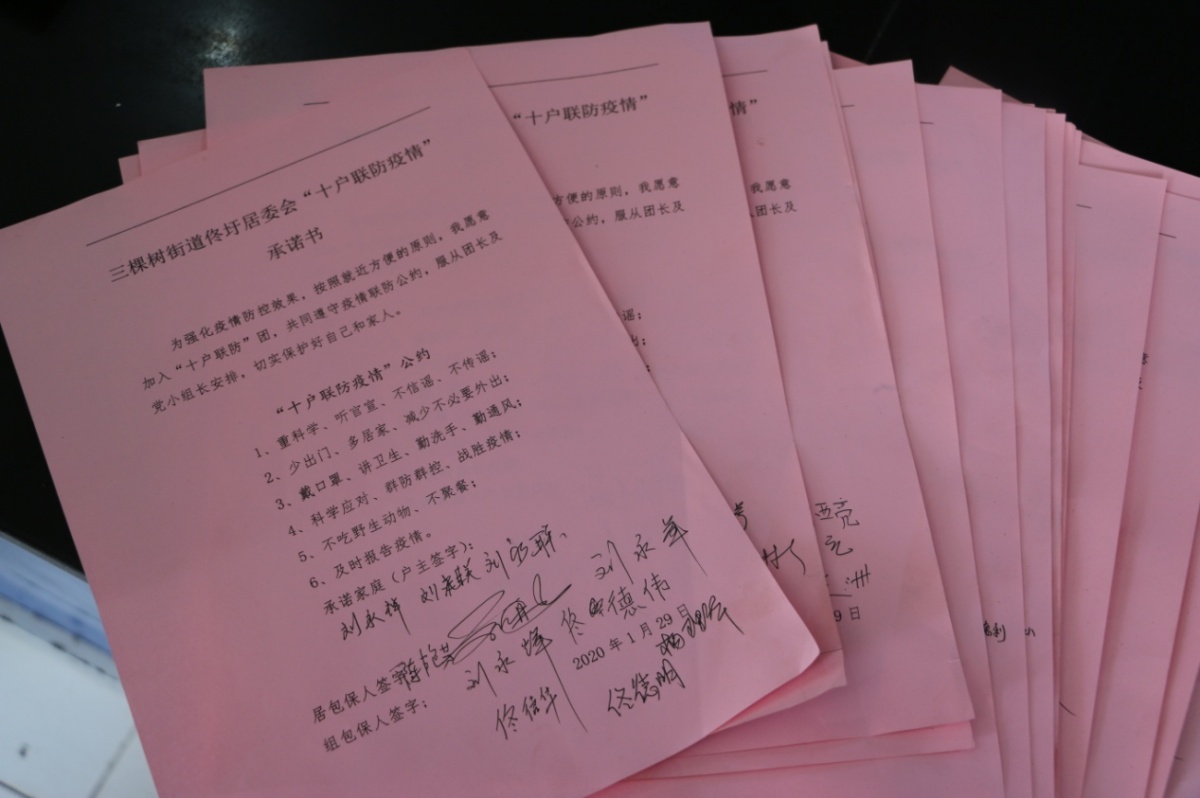 三棵树街道佟圩居委会“十户联防疫情”
承诺书
为强化疫情防控效果，按照就近方便的原则，我愿意
加入“十户联防”团，共同遵守疫情联防公约，服从团长及
党小组长安排，切实保护好自己和家人。
“十户联防疫情”公约
1、重科学、听官宣、不信谣、不传谣；
2、少出门、多居家、减少不必要外出；
3、戴口罩、讲卫生、勤洗手、勤通风；
4、科学应对、群防群控、战胜疫情；
5、不吃野生动物、不聚餐；
6、及时报告疫情。
承诺家庭（户主签字）：
刘永祥 刘永联 刘永军
居包保人签字
刘永峰 佟德伟
2020年1月29
组包保人签字：
佟信华 佟德明
“十户联防疫情”
方便的原则，我愿意
公约，服从团长及
谣；
情”
我愿意
团长及
亚亮
9日